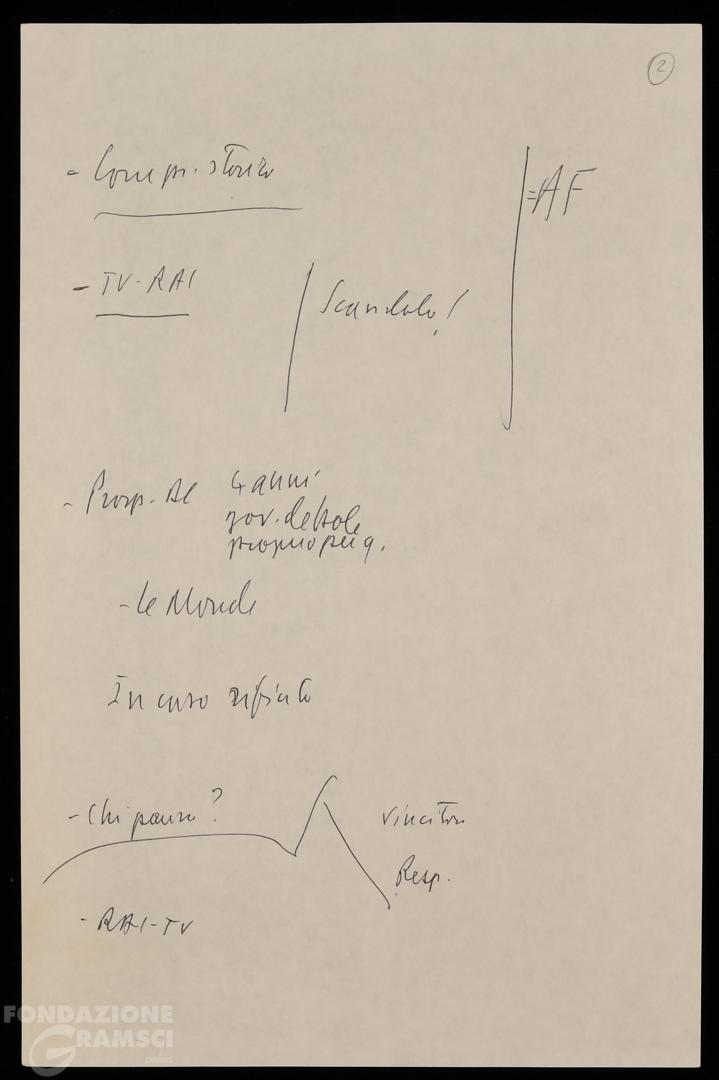 2
- Comp. storico
= AF
- TV-RAI
Scandalo!
- Prop. Al 4 anni
gov. debole
- Le Monde
In caso rifiuto
- Chi paura?
Vincitori
Resp.
- RAI-TV
FONDAZIONE
GRAMSCI
onlus